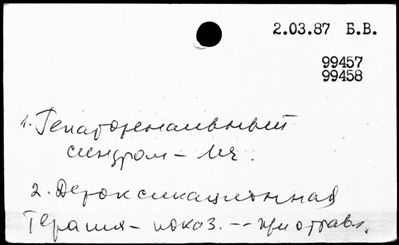 2.03.87 Б.В.
99457
99458
1. Гепаторенальный
синдром – леч.
2. Детоксикационная
терапия – показ. -- при отравл.